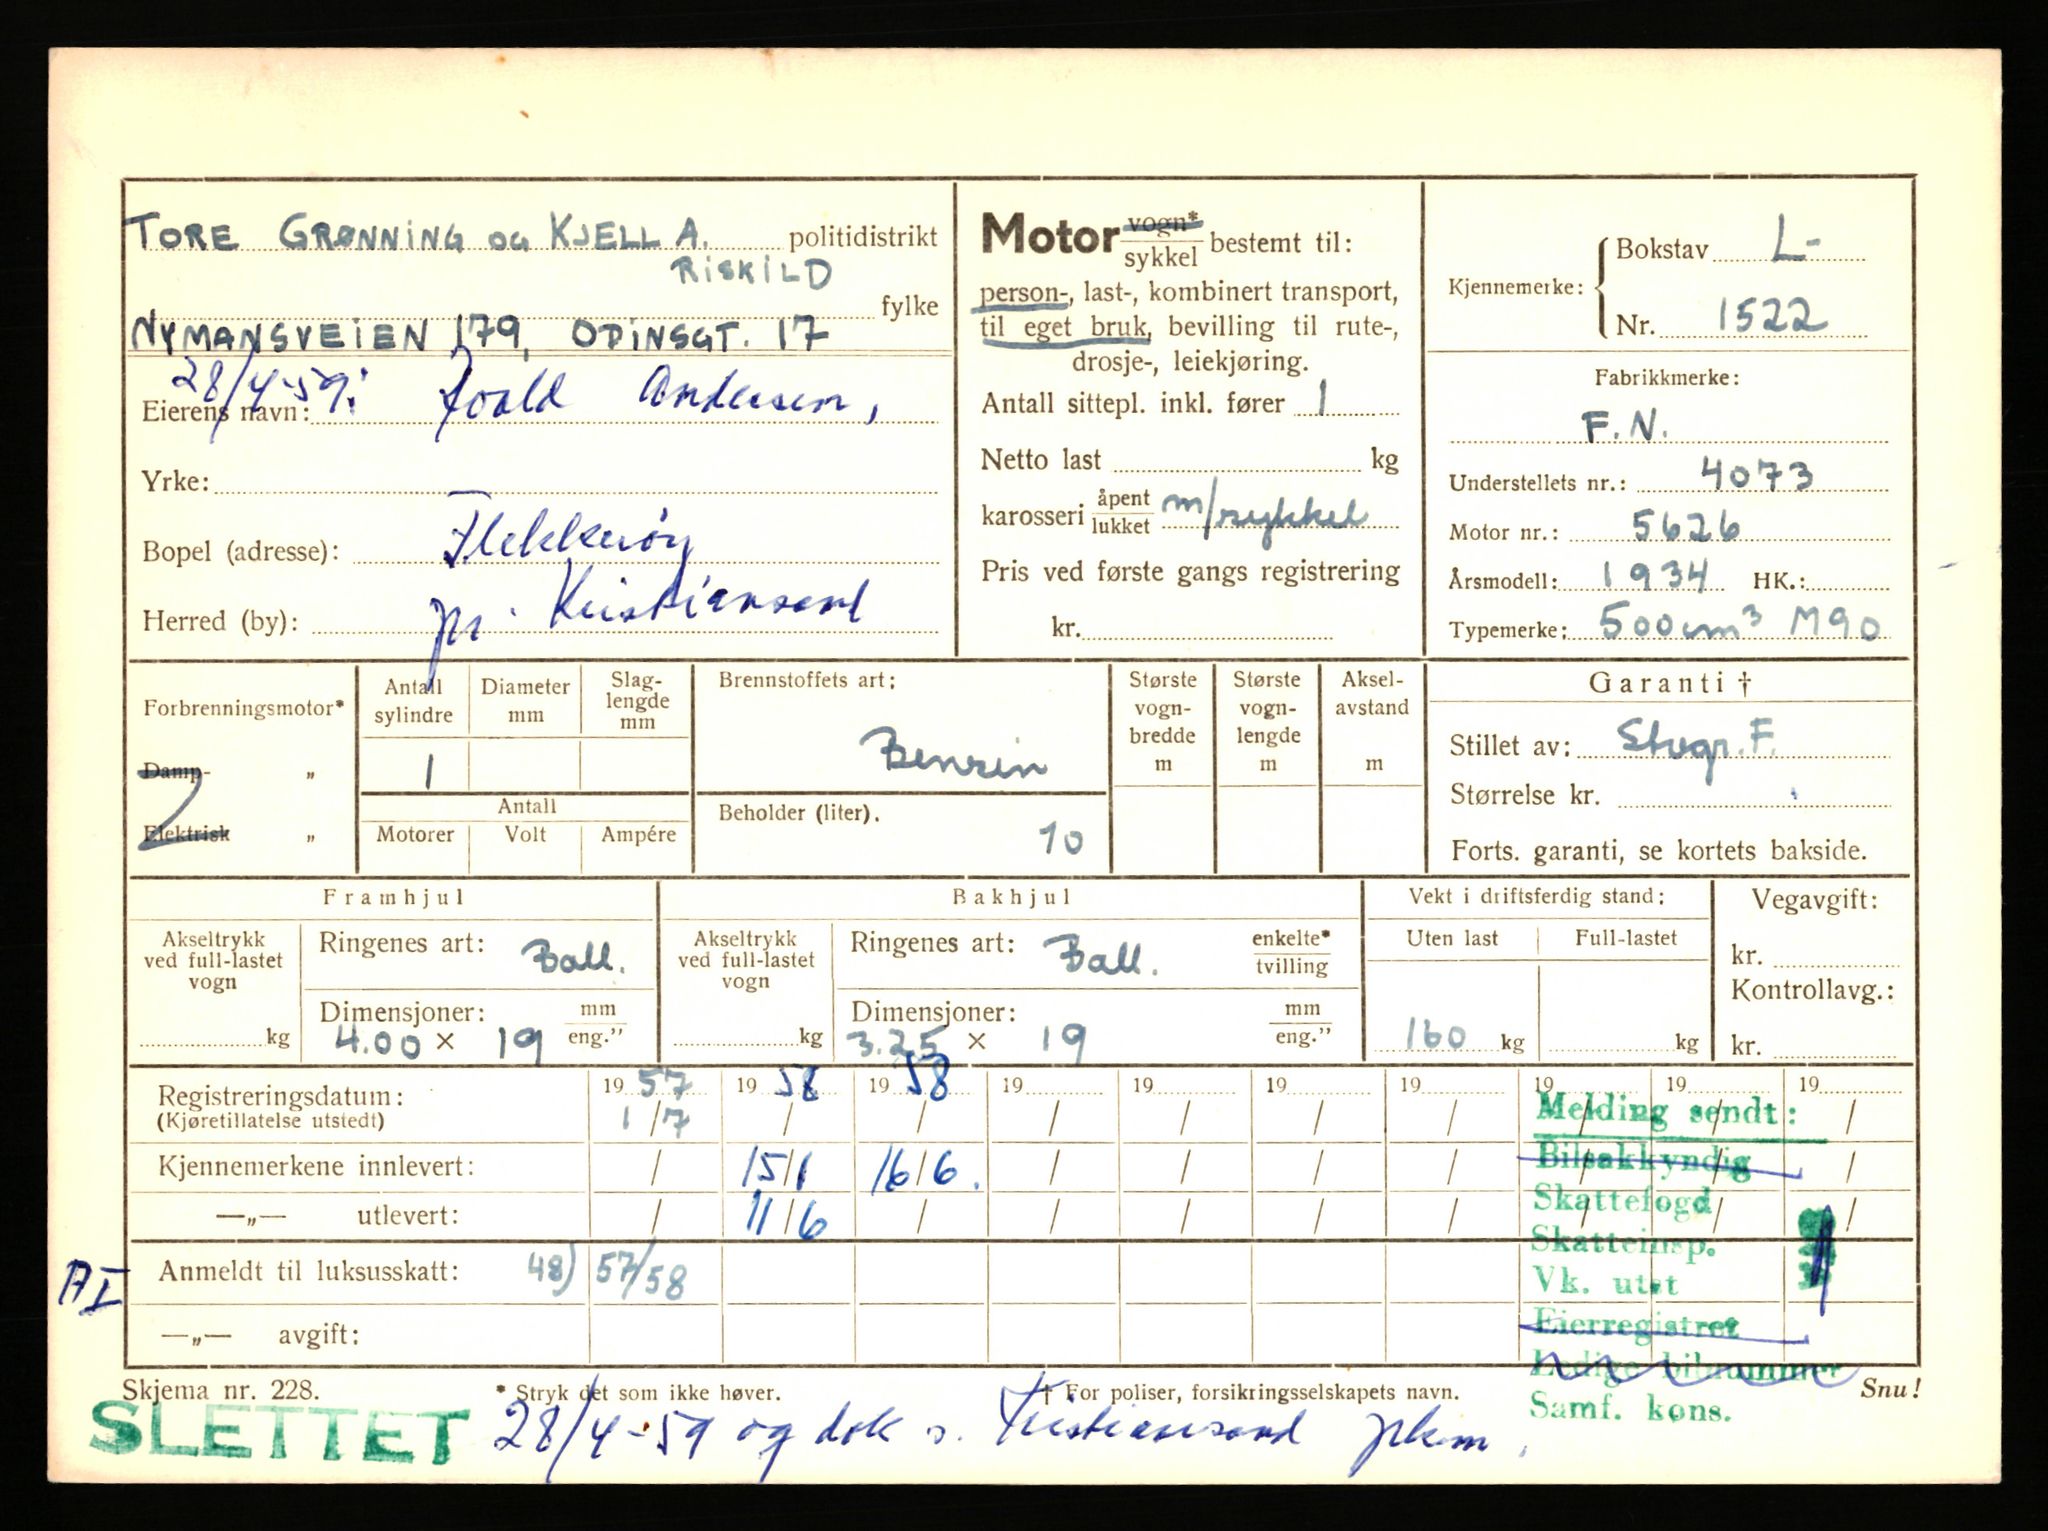 TORE GRØNNING OG KJELL A. politidistrikt
RISKILD
fylke
NYMANSVEIEN 179, ODINSGT. 17
28/4-59:
Eierens navn: Roald Andersen,
Yrke:
Bopel (adresse): Flekkerøy
Herred (by): pr. Kristiansand
Motor vogn*/sykkel bestemt til:
person-, last-, kombinert transport,
til eget bruk, bevilling til rute-,
drosje-, leiekjøring.
Antall sittepl. inkl. fører 1
Netto last kg
karosseri åpent/lukket m/sykkel
Pris ved første gangs registrering
kr.
Kjennemerke: Bokstav L-
Nr. 1522
Fabrikkmerke:
F.N.
Understellets nr.: 4073
Motor nr.: 5626
Årsmodell: 1934 HK.:
Typemerke: 500 cm³ M90
Forbrenningsmotor*
Damp- "
Elektrisk "
Antall sylindre
1
Diameter mm
Slag-lengde mm
Antall
Motorer Volt Ampére
Brennstoffets art:
Bensin
Beholder (liter).
10
Største vogn-bredde m
Største vogn-lengde m
Aksel-avstand m
Garanti †
Stillet av: Stvgr. F.
Størrelse kr.
Forts. garanti, se kortets bakside.
Framhjul
Akseltrykk ved full-lastet vogn
kg
Ringenes art: Ball.
Dimensjoner: mm/eng."
4.00 × 19
Bakhjul
Akseltrykk ved full-lastet vogn
kg
Ringenes art: Ball. enkelte*/tvilling
Dimensjoner: mm/eng."
3.25 × 19
Vekt i driftsferdig stand:
Uten last Full-lastet
160 kg kg
Vegavgift:
kr.
Kontrollavg.:
kr.
19 57 19 58 19 58 19 19 19 19 19 19 19
Registreringsdatum:
(Kjøretillatelse utstedt) 1/7 / / / / / / / / /
Kjennemerkene innlevert: / 15/1 16/6. / / / / / / /
—„— utlevert: / 11/6 / / / / / / / /
Anmeldt til luksusskatt: 48) 57/58
AI
—„— avgift:
Melding sendt:
Bilsakkyndig
Skattefogd
Skatteinsp.
Vk. utst
Eierregistret
Ledige bilnummer
Samf. kons.
Skjema nr. 228. * Stryk det som ikke høver. † For poliser, forsikringsselskapets navn. Snu!
SLETTET 28/4-59 og dok s. Kristiansand pkm.